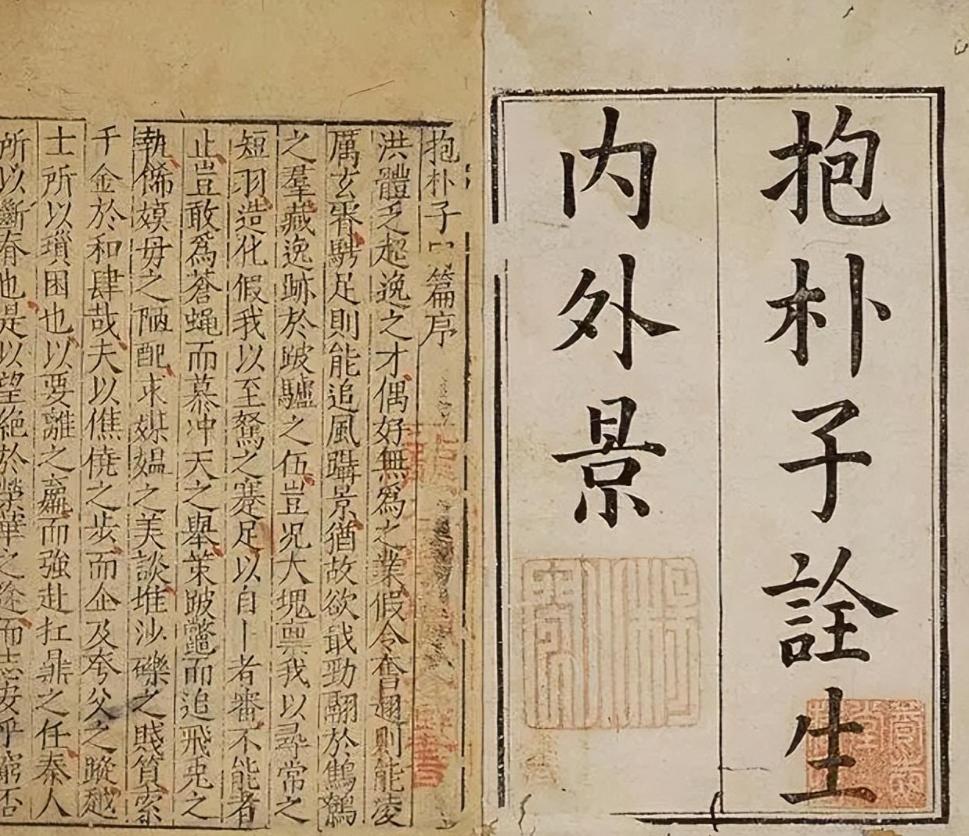 抱朴子詮生
内外景
抱朴子篇序
洪體乏超逸之才偶好無爲之業假令奮翅則能凌
厲玄霄騁足則能追風躡景猶故欲戢勁翮於鷦鷯
之羣藏逸跡於跛驢之伍豈况大塊禀我以尋常之
短羽造化假我以至駑之蹇足以自者審不能者
止豈敢爲蒼蝇而慕冲天之舉策跛鼈而追飛兎之
執嫫母之陋配求媒媪之美談堆沙礫之賤質索
千金於和肆哉夫以僬僥之步而企及夸父之蹤越
士所以瑣困也以要離之羸而強赴扛鼎之任秦人
所以斷脊也是以望絶於榮華之途而志安乎窮否